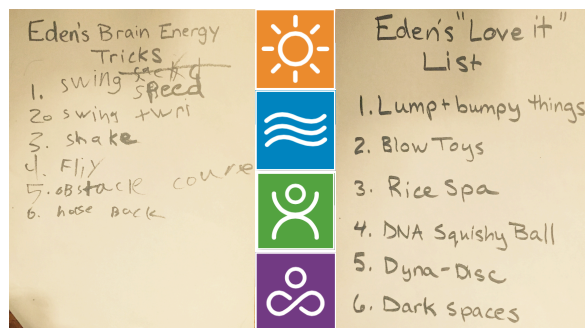 Eden's Brain Energy
Tricks
1. swing
speed
2. swing twri
3. shake
4. Fliy
5. obstacle course
6. hose Back
Eden's "Love it"
List
1. Lump + bumpy things
2. Blow Toys
3. Rice Spa
4. DNA Squishy Ball
5. Dyna-Disc
6. Dark spaces